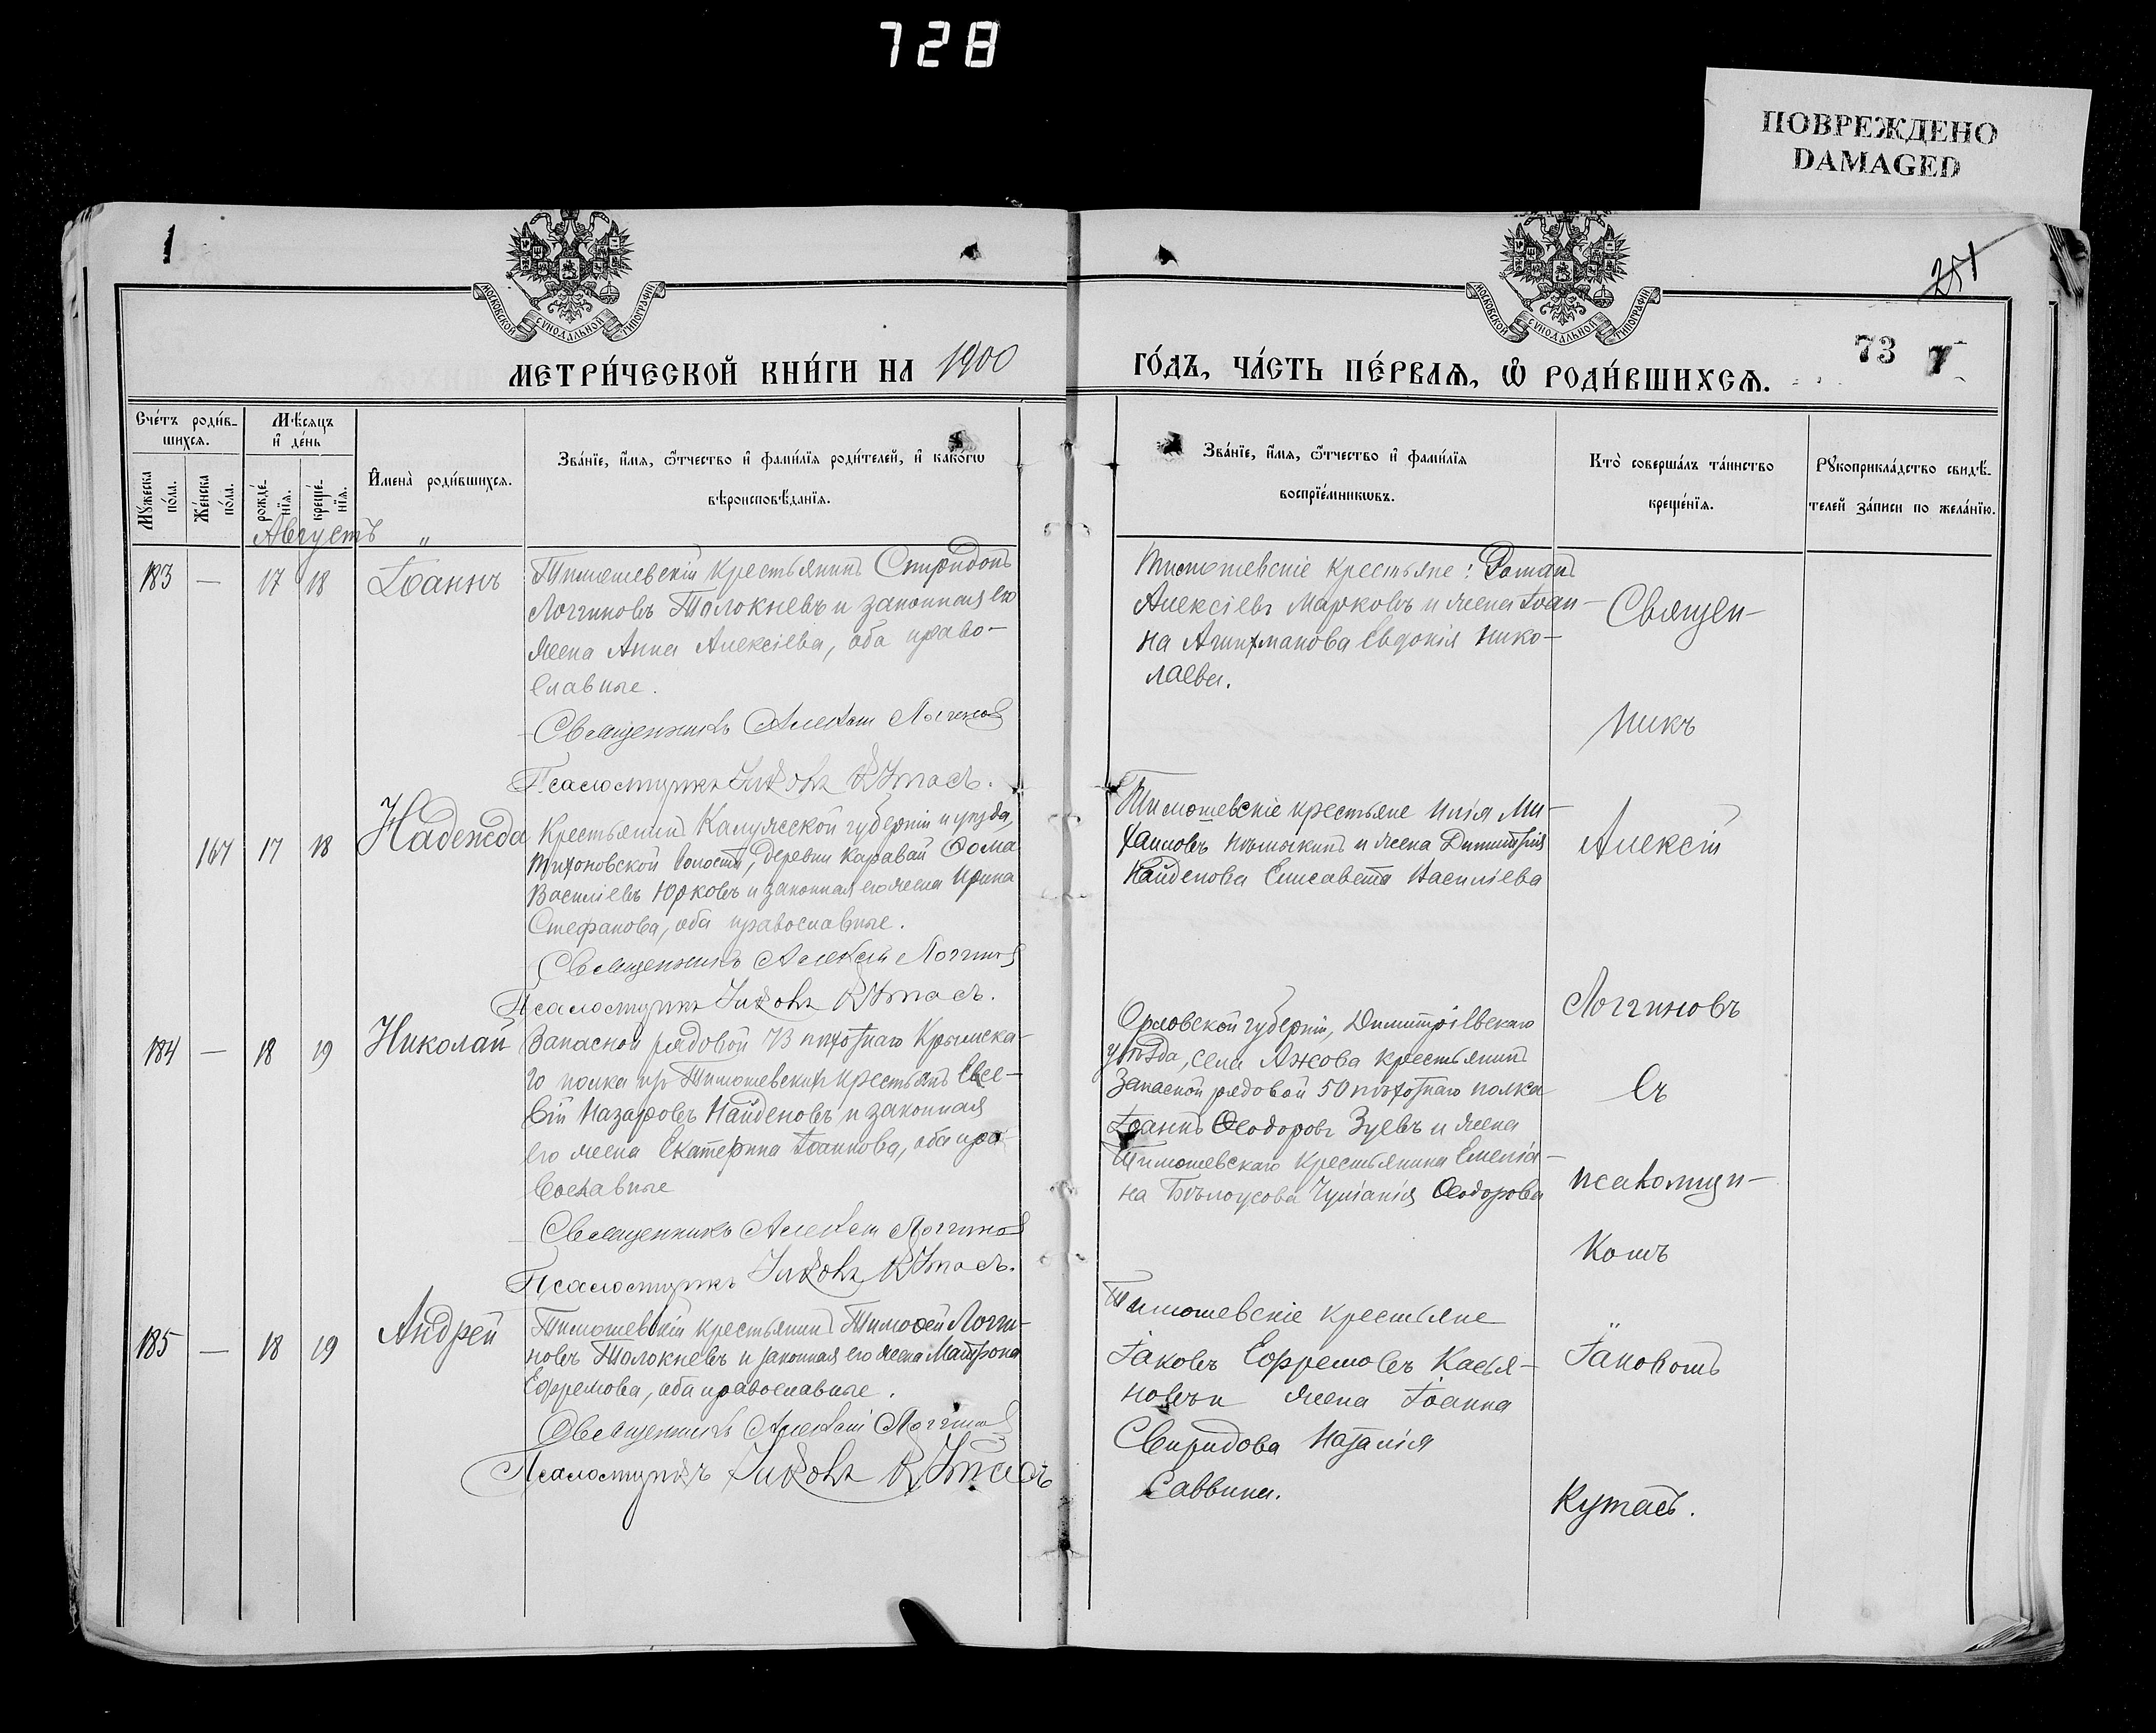 728
ПОВРЕЖДЕНО
DAMAGED
1
251
МОСКОВСКОЙ СѴНОДАЛЬНОЙ ТИПОГРАФІИ
МОСКОВСКОЙ СѴНОДАЛЬНОЙ ТИПОГРАФІИ
73
МЕТРИ́ЧЕСКОЙ КНИ́ГИ НА 1900
ГО́ДЪ, ЧА́СТЬ ПЕ́РВАѦ, Ѡ҆ РОДИ́ВШИХСѦ.
Сче́тъ роди́в-
шихсѧ.
Мужеска по́ла.
Же́нска по́ла.
Мѣ́сѧцъ
и҆ де́нь
рожде́-
нїѧ.
креще́-
нїѧ.
И҆мена̀ роди́вшихсѧ.
Зва́нїе, и҆́мѧ, ѻ҆́тчество и҆ фами́лїѧ роди́телей, и҆ како́гѡ
вѣроисповѣ́данїѧ.
Зва́нїе, и҆́мѧ, ѻ҆́тчество и҆ фами́лїѧ
воспрїе́мникѡвъ.
Кто̀ соверша́лъ та́инство
креще́нїѧ.
Рꙋкоприкла́дство свидѣ́-
телей за́писи по жела́нїю.
Августъ "
183 — 17 18 Іоаннъ
Тимошевскій крестьянинъ Спиридонъ
Логгиновъ Толокневъ и законная его
жена Анна Алексіева, оба право-
славные.
Священникъ Алексій Логгиновъ
Псаломщикъ Іаковъ Кутасъ.
Тимошевскіе крестьяне: Романъ
Алексіевъ Марковъ и жена Іоан-
на Евдокія Нико-
лаева.
167 17 18 Надежда
Крестьянинъ Калужской губерніи и уѣзда,
Тихоновской волости, деревни Каравай Ѳома
Василіевъ Юрковъ и законная его жена Ирина
Стефанова, оба православные.
Священникъ Алексій Логгиновъ
Псаломщикъ Іаковъ Кутасъ.
Тимошевскіе крестьяне Илія Ми-
хаиловъ и жена Димитрія
Найденова Елисавета Василіева
184 — 18 19 Николай
Запасной рядовой 73 пѣхотнаго Крымска-
го полка изъ Тимошевскихъ крестьянъ Евсе-
вій Назаровъ Найденовъ и законная
его жена Екатерина Іоаннова, оба пра-
вославные
Священникъ Алексій Логгиновъ
Псаломщикъ Іаковъ Кутасъ.
Орловской губерніи, Димитріевскаго
уѣзда, села Ажова крестьянинъ
Запасной рядовой 50 пѣхотнаго полка
Іоаннъ Ѳеодоровъ Зуевъ и жена
Тимошевскаго крестьянина Емеліа-
на Бѣлоусова Іуліанія Ѳеодорова
185 — 18 19 Андрей
Тимошевскій крестьянинъ Тимоѳей Логги-
новъ Толокневъ и законная его жена Матрона
Ефремова, оба православные.
Священникъ Алексій Логгиновъ
Псаломщикъ Іаковъ Кутасъ
Тимошевскіе крестьяне
Іаковъ Ефремовъ Касья-
новъ и жена Іоанна
Свиридова Наталія
Саввина.
Священ-
никъ
Алексій
Логгиновъ
съ
псаломщи-
комъ
"
Іаковомъ
Кутасъ.